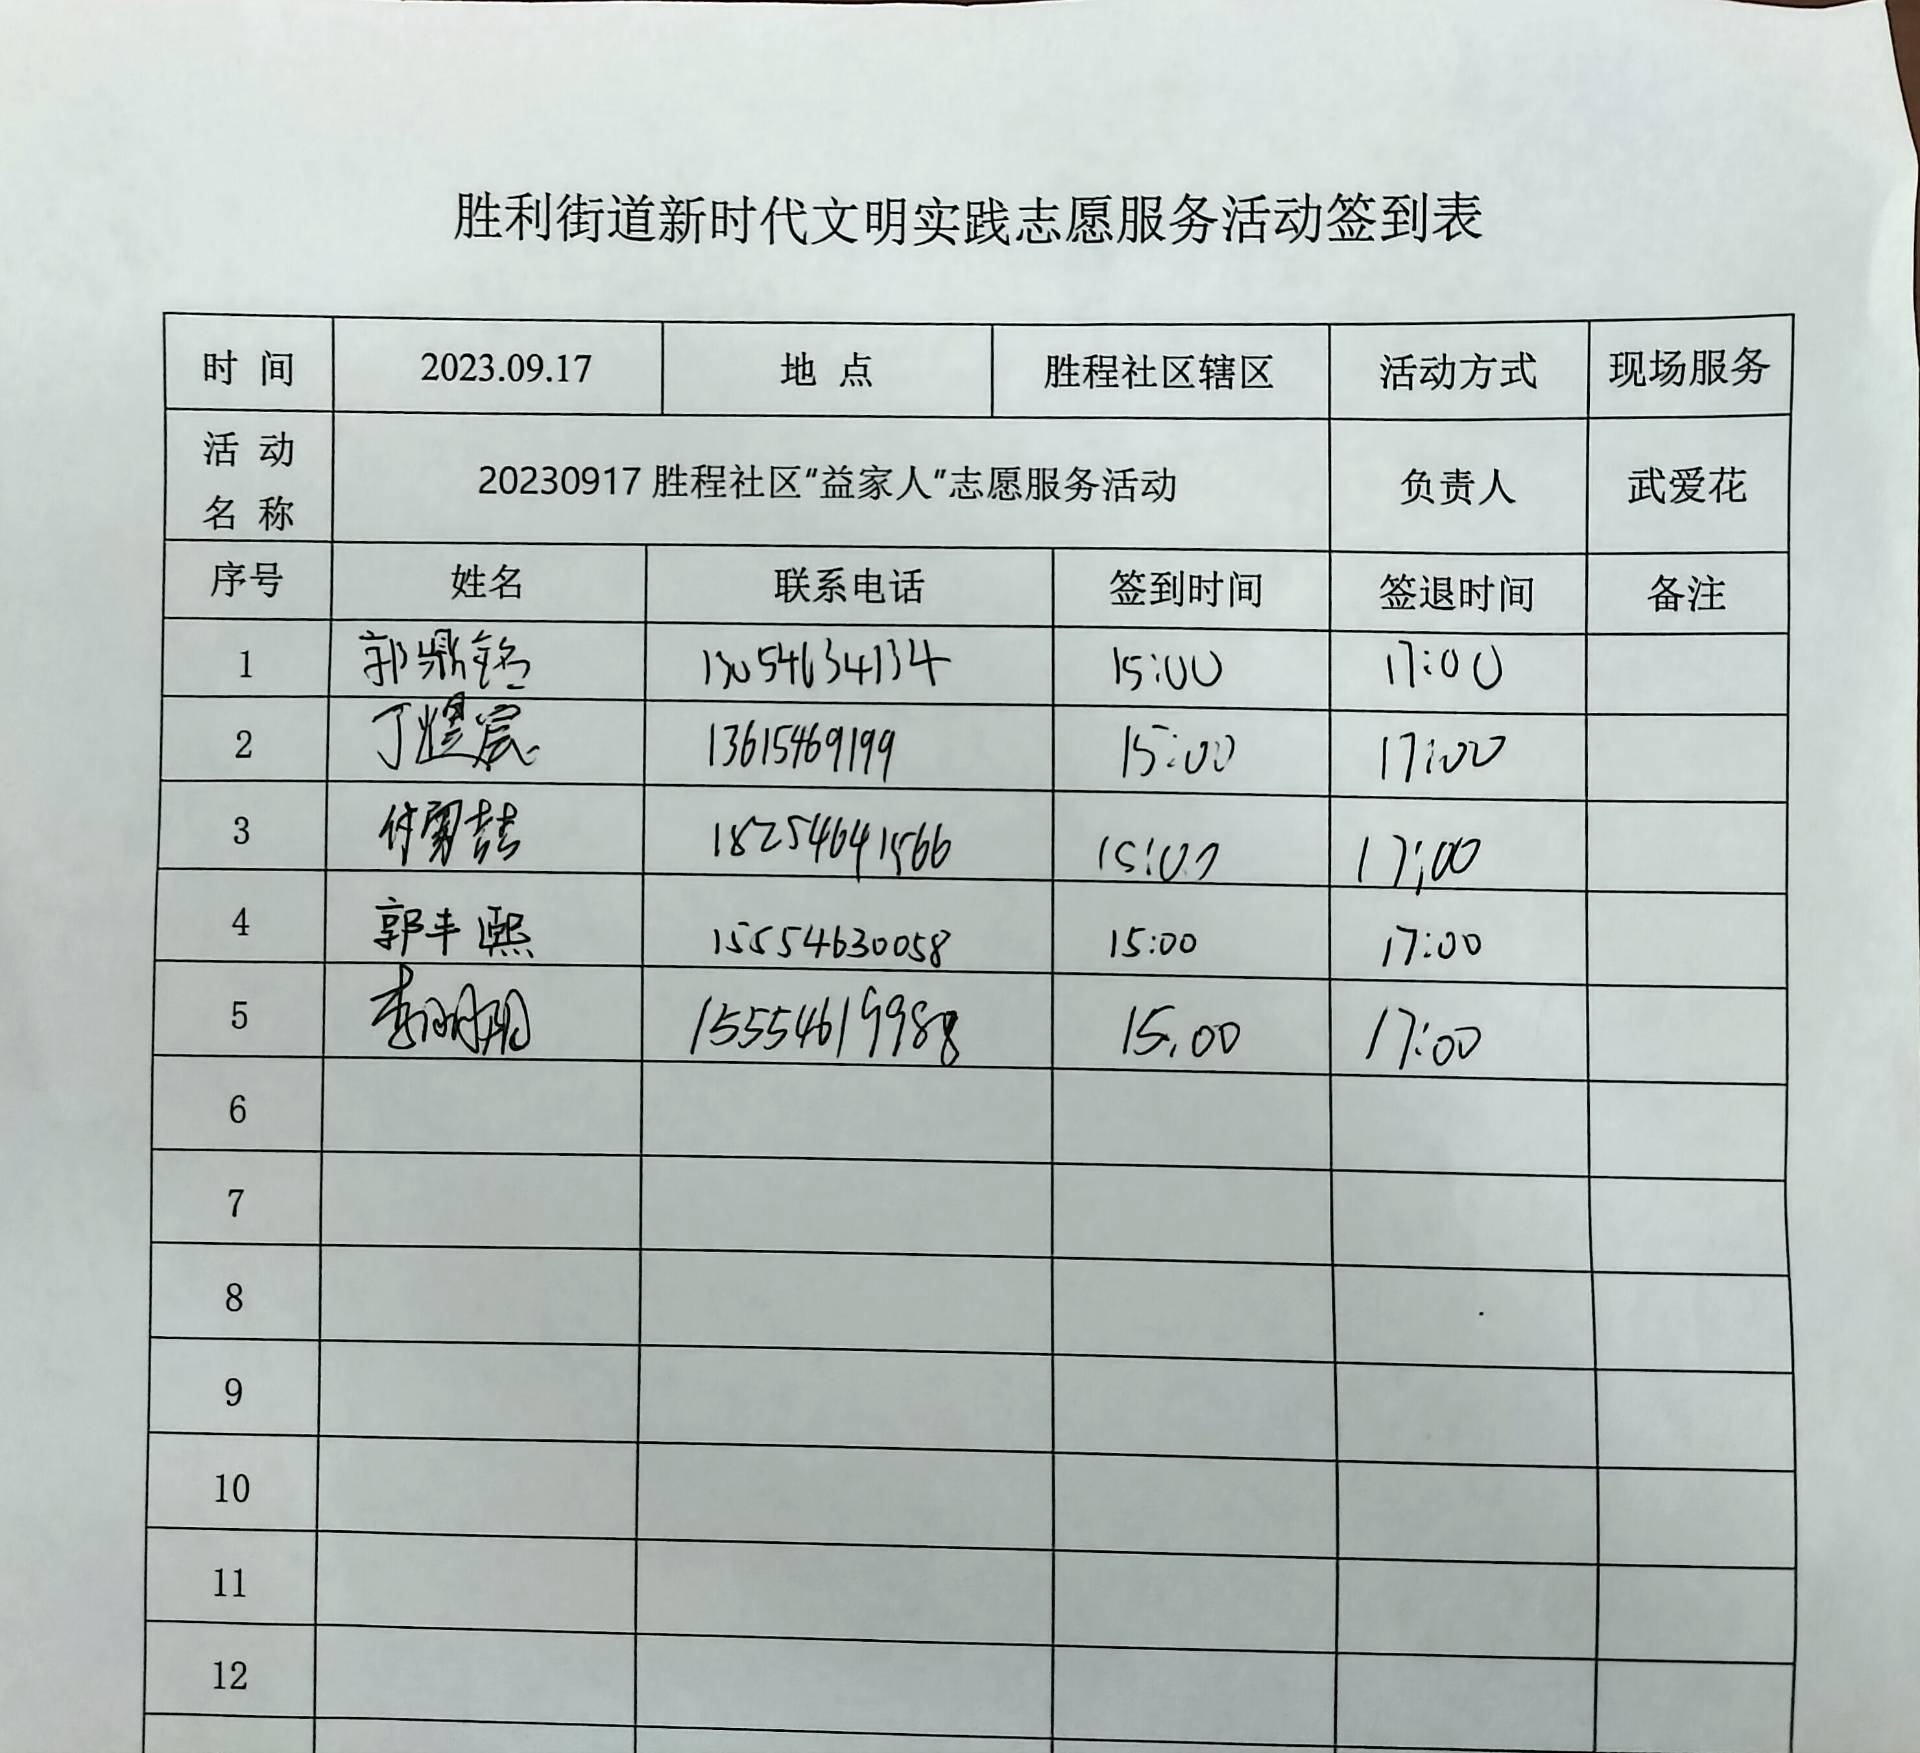 胜利街道新时代文明实践志愿服务活动签到表
时 间 2023.09.17 地 点 胜程社区辖区 活动方式 现场服务
活 动
名 称 20230917 胜程社区“益家人”志愿服务活动 负责人 武爱花
序号 姓名 联系电话 签到时间 签退时间 备注
1 郭鼎铭 13054634134 15:00 17:00
2 丁煜宸 13615469199 15:00 17:00
3 18254641566 15:00 17:00
4 郭丰熙 15554630058 15:00 17:00
5 15554619988 15.00 17:00
6
7
8
9
10
11
12